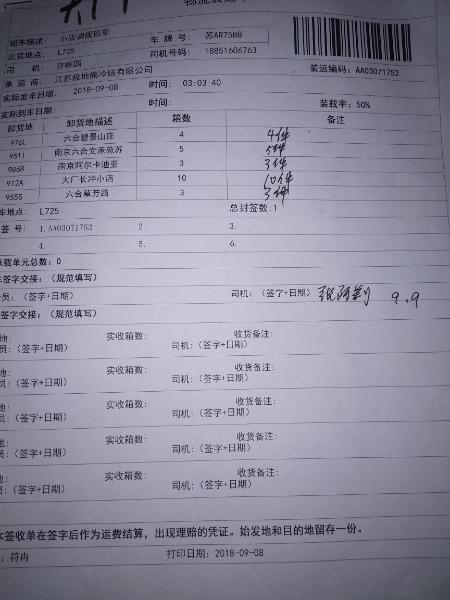 班车描述: 小店调拨班车 车 牌 号: 苏AR75B8
出货地点: L725 司机号码: 18851606763
司 机: 许秧园
承 运 商: 江苏极地熊冷链有限公司 装运编码: AA03071752
实际发车日期: 2018-09-08 时间: 03:03:40
实际到车日期: 时间: 装载率: 50%
卸货地 卸货地描述 箱数 备注
976L 六合碧景山庄 4 4件
951I 南京六合文承苑苏 5 5件
986R 南京阿尔卡迪亚 3 3件
912A 大厂长冲小店 10 10件
955S 六合草芳路 3 3件
车地点: L725 总封签数:1
签 号: 1.AA03071752 2. 3.
4. 5. 6.
承载单元总数: 0
签字交接: (规范填写)
员: (签字+日期) 司机: (签字+日期) 9.9
签字交接: (规范填写)
地: 实收箱数: 收货备注:
员: (签字+日期) 司机: (签字+日期)
地: 实收箱数: 收货备注:
员: (签字+日期) 司机: (签字+日期)
地: 实收箱数: 收货备注:
员: (签字+日期) 司机: (签字+日期)
地: 实收箱数: 收货备注:
员: (签字+日期) 司机: (签字+日期)
地: 实收箱数: 收货备注:
员: (签字+日期) 司机: (签字+日期)
本签收单在签字后作为运费结算，出现理赔的凭证。始发地和目的地留存一份。
: 符冉 打印日期: 2018-09-08